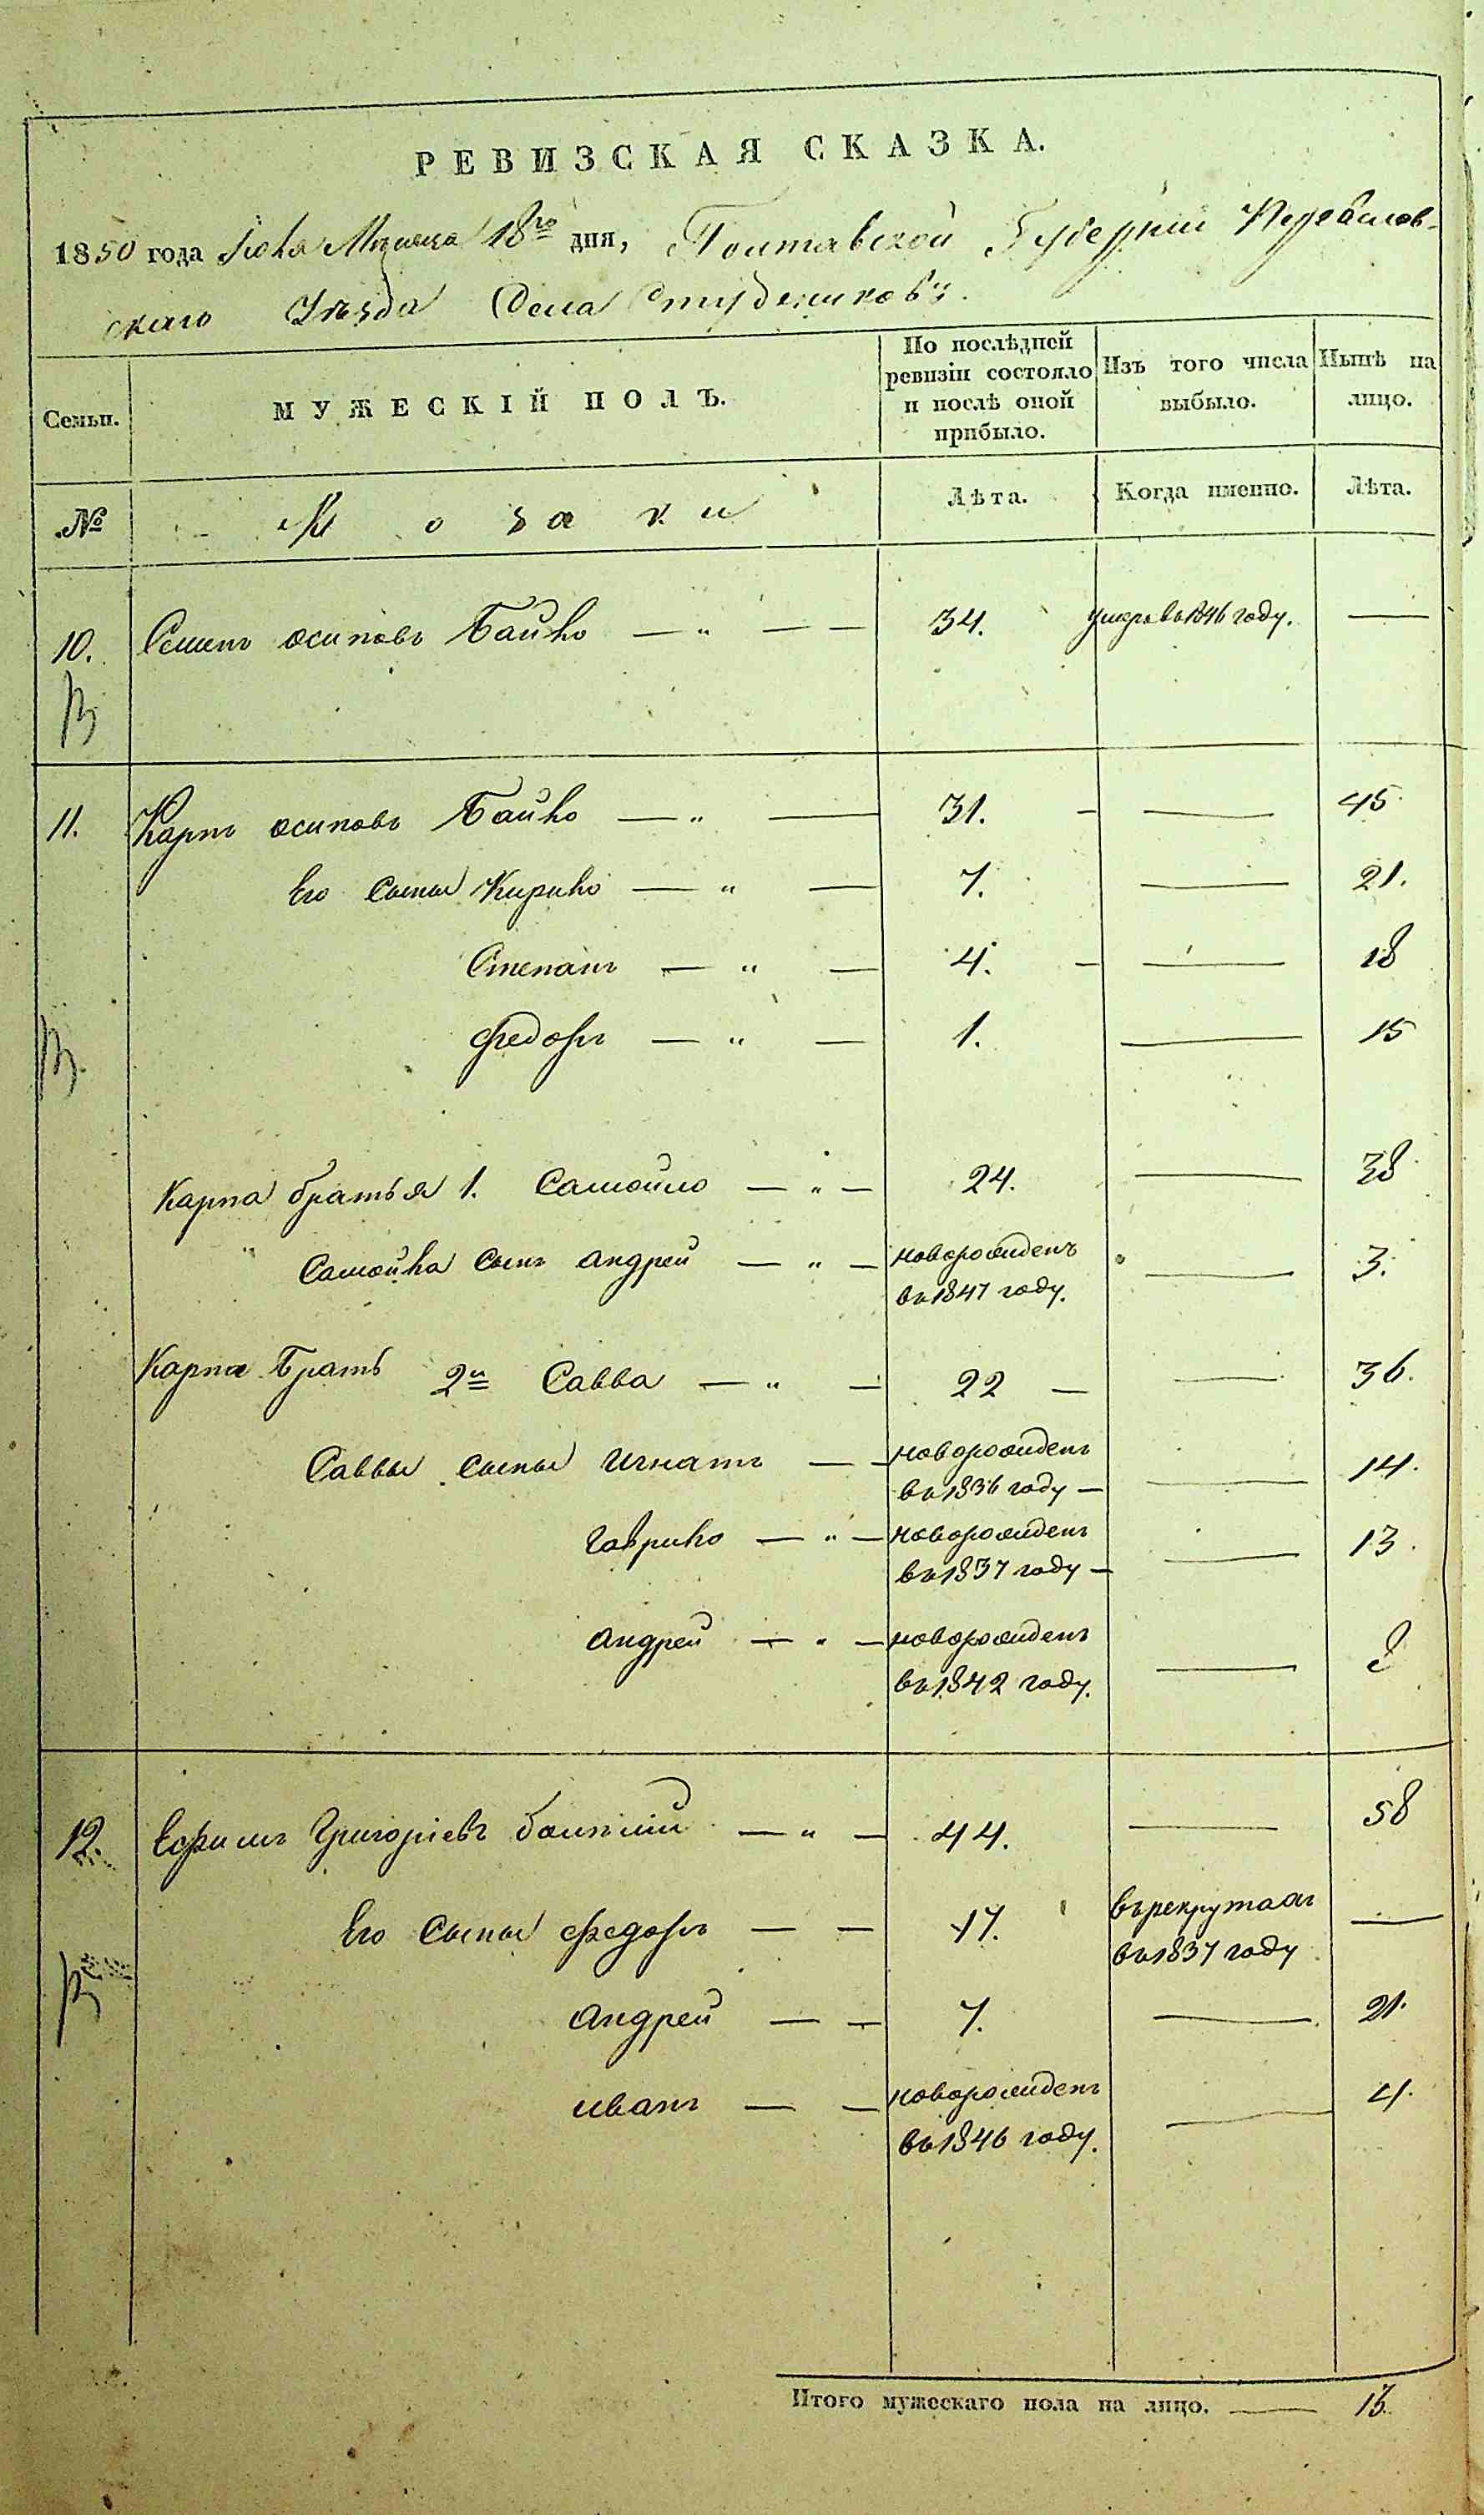 РЕВИЗСКАЯ СКАЗКА.
1850 года Іюля Мѣсяца 18го дня, Полтавской Губерніи Переяслов-
скаго Уѣзда Села Студениковъ.
Семьи. МУЖЕСКІЙ ПОЛЪ. По послѣдней ревизіи состояло и послѣ оной прибыло. Изъ того числа выбыло. Нынѣ на лицо.
№ Козаки Лѣта. Когда именно. Лѣта.
10. Семенъ осиповъ Бойко — „ — — 34. умеръ въ 1846 году. —
11. Карпъ осиповъ Бойко — „ — 31. — — 45.
Его Сыны Кирило — „ — 7. — 21.
Степанъ — „ — 4. — — 18
Федоръ — „ — 1. — 15
Карпа братья 1. Самойло — „ — 24. — 38
Самойла Сынъ андрей — „ — новорожденъ — 3.
въ 1847 году.
Карпа Братъ 2й Савва — „ — 22 — — 36.
Саввы Сыны Игнатъ — — новорожденъ — 14.
въ 1836 году —
Гаврило — „ — новорожденъ — 13.
въ 1837 году —
андрей — „ — новорожденъ — 8
въ 1842 году.
12. Ефимъ Григоріевъ — „ — 44. — 58
Его Сыны Федоръ — — 17. въ рекрутахъ —
въ 1837 году
андрей — — 7. — 21.
иванъ — — новорожденъ — 4.
въ 1846 году.
Итого мужескаго пола на лицо. — 13.